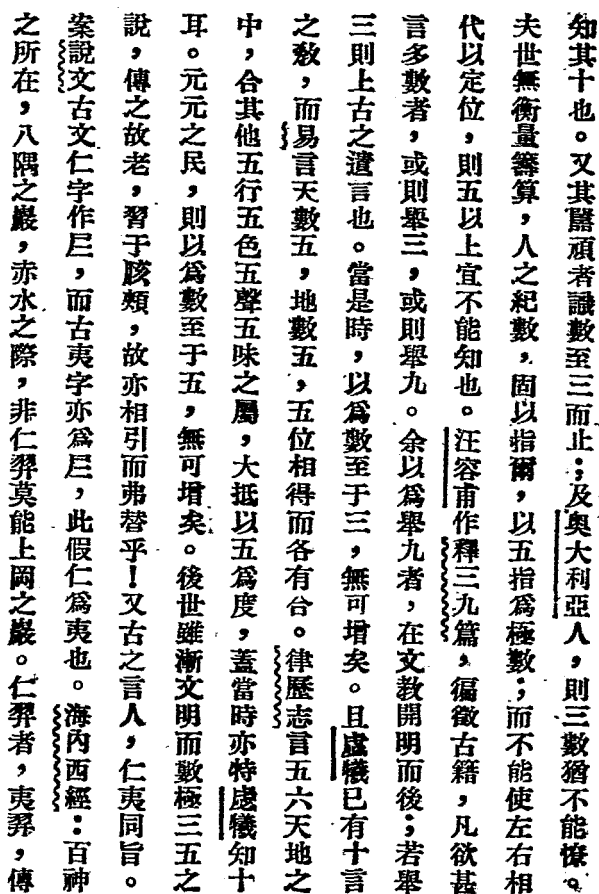 知其十也。又其嚚頑者識數至三而止；及奧大利亞人，則三數猶不能憭。
夫世無衡量籌算，人之紀數，固以指爾，以五指爲極數；而不能使左右相
代以定位，則五以上宜不能知也。汪容甫作釋三九篇，徧徵古籍，凡欲甚
言多數者，或則舉三，或則舉九。余以爲舉九者，在文教開明而後；若舉
三則上古之遺言也。當是時，以爲數至于三，無可增矣。且虙犧已有十言
之敎，而易言天數五，地數五，五位相得而各有合。律歷志言五六天地之
中，合其他五行五色五聲五味之屬，大抵以五爲度，蓋當時亦特虙犧知十
耳。元元之民，則以爲數至于五，無可增矣。後世雖漸文明而數極三五之
說，傳之故老，習于胲頰，故亦相引而弗替乎！又古之言人，仁夷同旨。
案說文古文仁字作𡰥，而古夷字亦爲𡰥，此假仁爲夷也。海內西經：百神
之所在，八隅之巖，赤水之際，非仁羿莫能上岡之巖。仁羿者，夷羿，傳